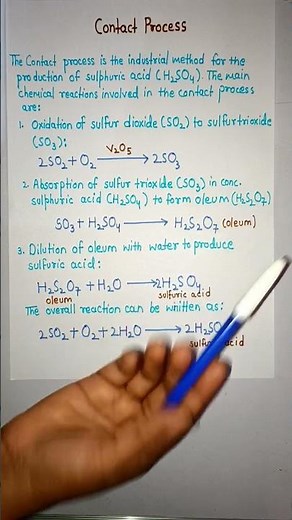 Contact Process
The Contact process is the industrial method for the
production of sulphuric acid (H₂SO₄). The main
chemical reactions involved in the contact process
are:
1. Oxidation of sulfur dioxide (SO₂) to sulfur trioxide
(SO₃):
V₂O₅
2SO₂ + O₂ ⟶ 2SO₃
2. Absorption of sulfur trioxide (SO₃) in conc.
sulphuric acid (H₂SO₄) to form oleum (H₂S₂O₇)
SO₃ + H₂SO₄ ⟶ H₂S₂O₇ (oleum)
3. Dilution of oleum with water to produce
sulfuric acid:
H₂S₂O₇ + H₂O ⟶ 2H₂SO₄
oleum sulfuric acid
The overall reaction can be written as:
2SO₂ + O₂ + 2H₂O ⟶ 2H₂SO
acid